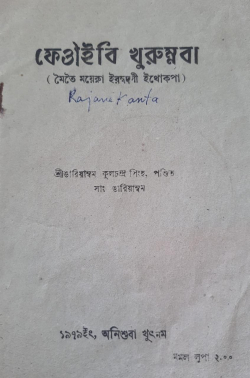 ফেওাঁইবি খুরুম্নবা
( মৈতৈ ময়েক্না ইরম্মদুনী ইথোকপা )
Rajani Kanta
শ্রীঙারিয়াম্বম কুলচন্দ্র সিংহ, পণ্ডিত
সাং ঙারিয়াম্বম
১৯৭৯ইং, অনিশুবা খুৎনম
মমল লুপা ২.০০